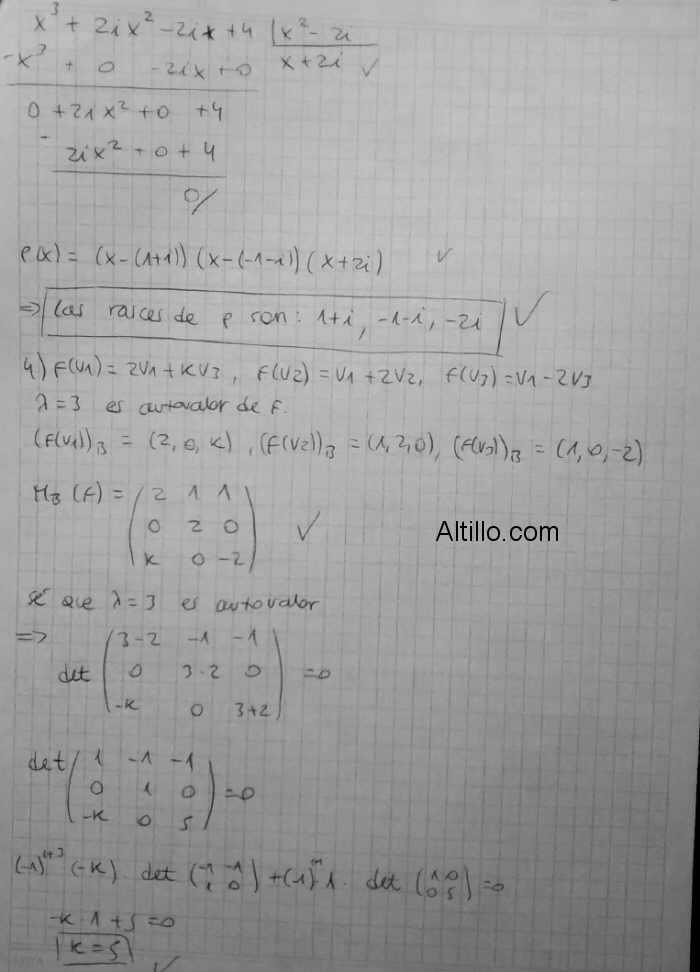 x³ + 2ix² - 2ix + 4 | x² - 2i
-x³ + 0 - 2ix + 0 x + 2i ✓
0 + 2ix² + 0 + 4
- 2ix² + 0 + 4
0/
P(x) = (x-(1+i)) (x-(-1-i)) (x+2i) ✓
⇒ Las raices de p son: 1+i, -1-i, -2i ✓
4) F(V1) = 2V1 + KV3, F(V2) = V1 + 2V2, F(V3) = V1 - 2V3
λ = 3 es autovalor de F.
(F(V1))B = (2, 0, K), (F(V2))B = (1, 2, 0), (F(V3))B = (1, 0, -2)
MB (F) = ( 2 1 1
0 2 0 ) ✓
K 0 -2
Altillo.com
sé que λ = 3 es autovalor
=> ( 3-2 -1 -1
det 0 3-2 0 ) = 0
-K 0 3+2
det ( 1 -1 -1
0 1 0 ) = 0
-K 0 5
(-1)¹⁺³ (-K) . det ( -1 -1 / 1 0 ) + (-1) 1 . det ( 1 0 / 0 5 ) = 0
-K . 1 + 5 = 0
K = 5 ✓